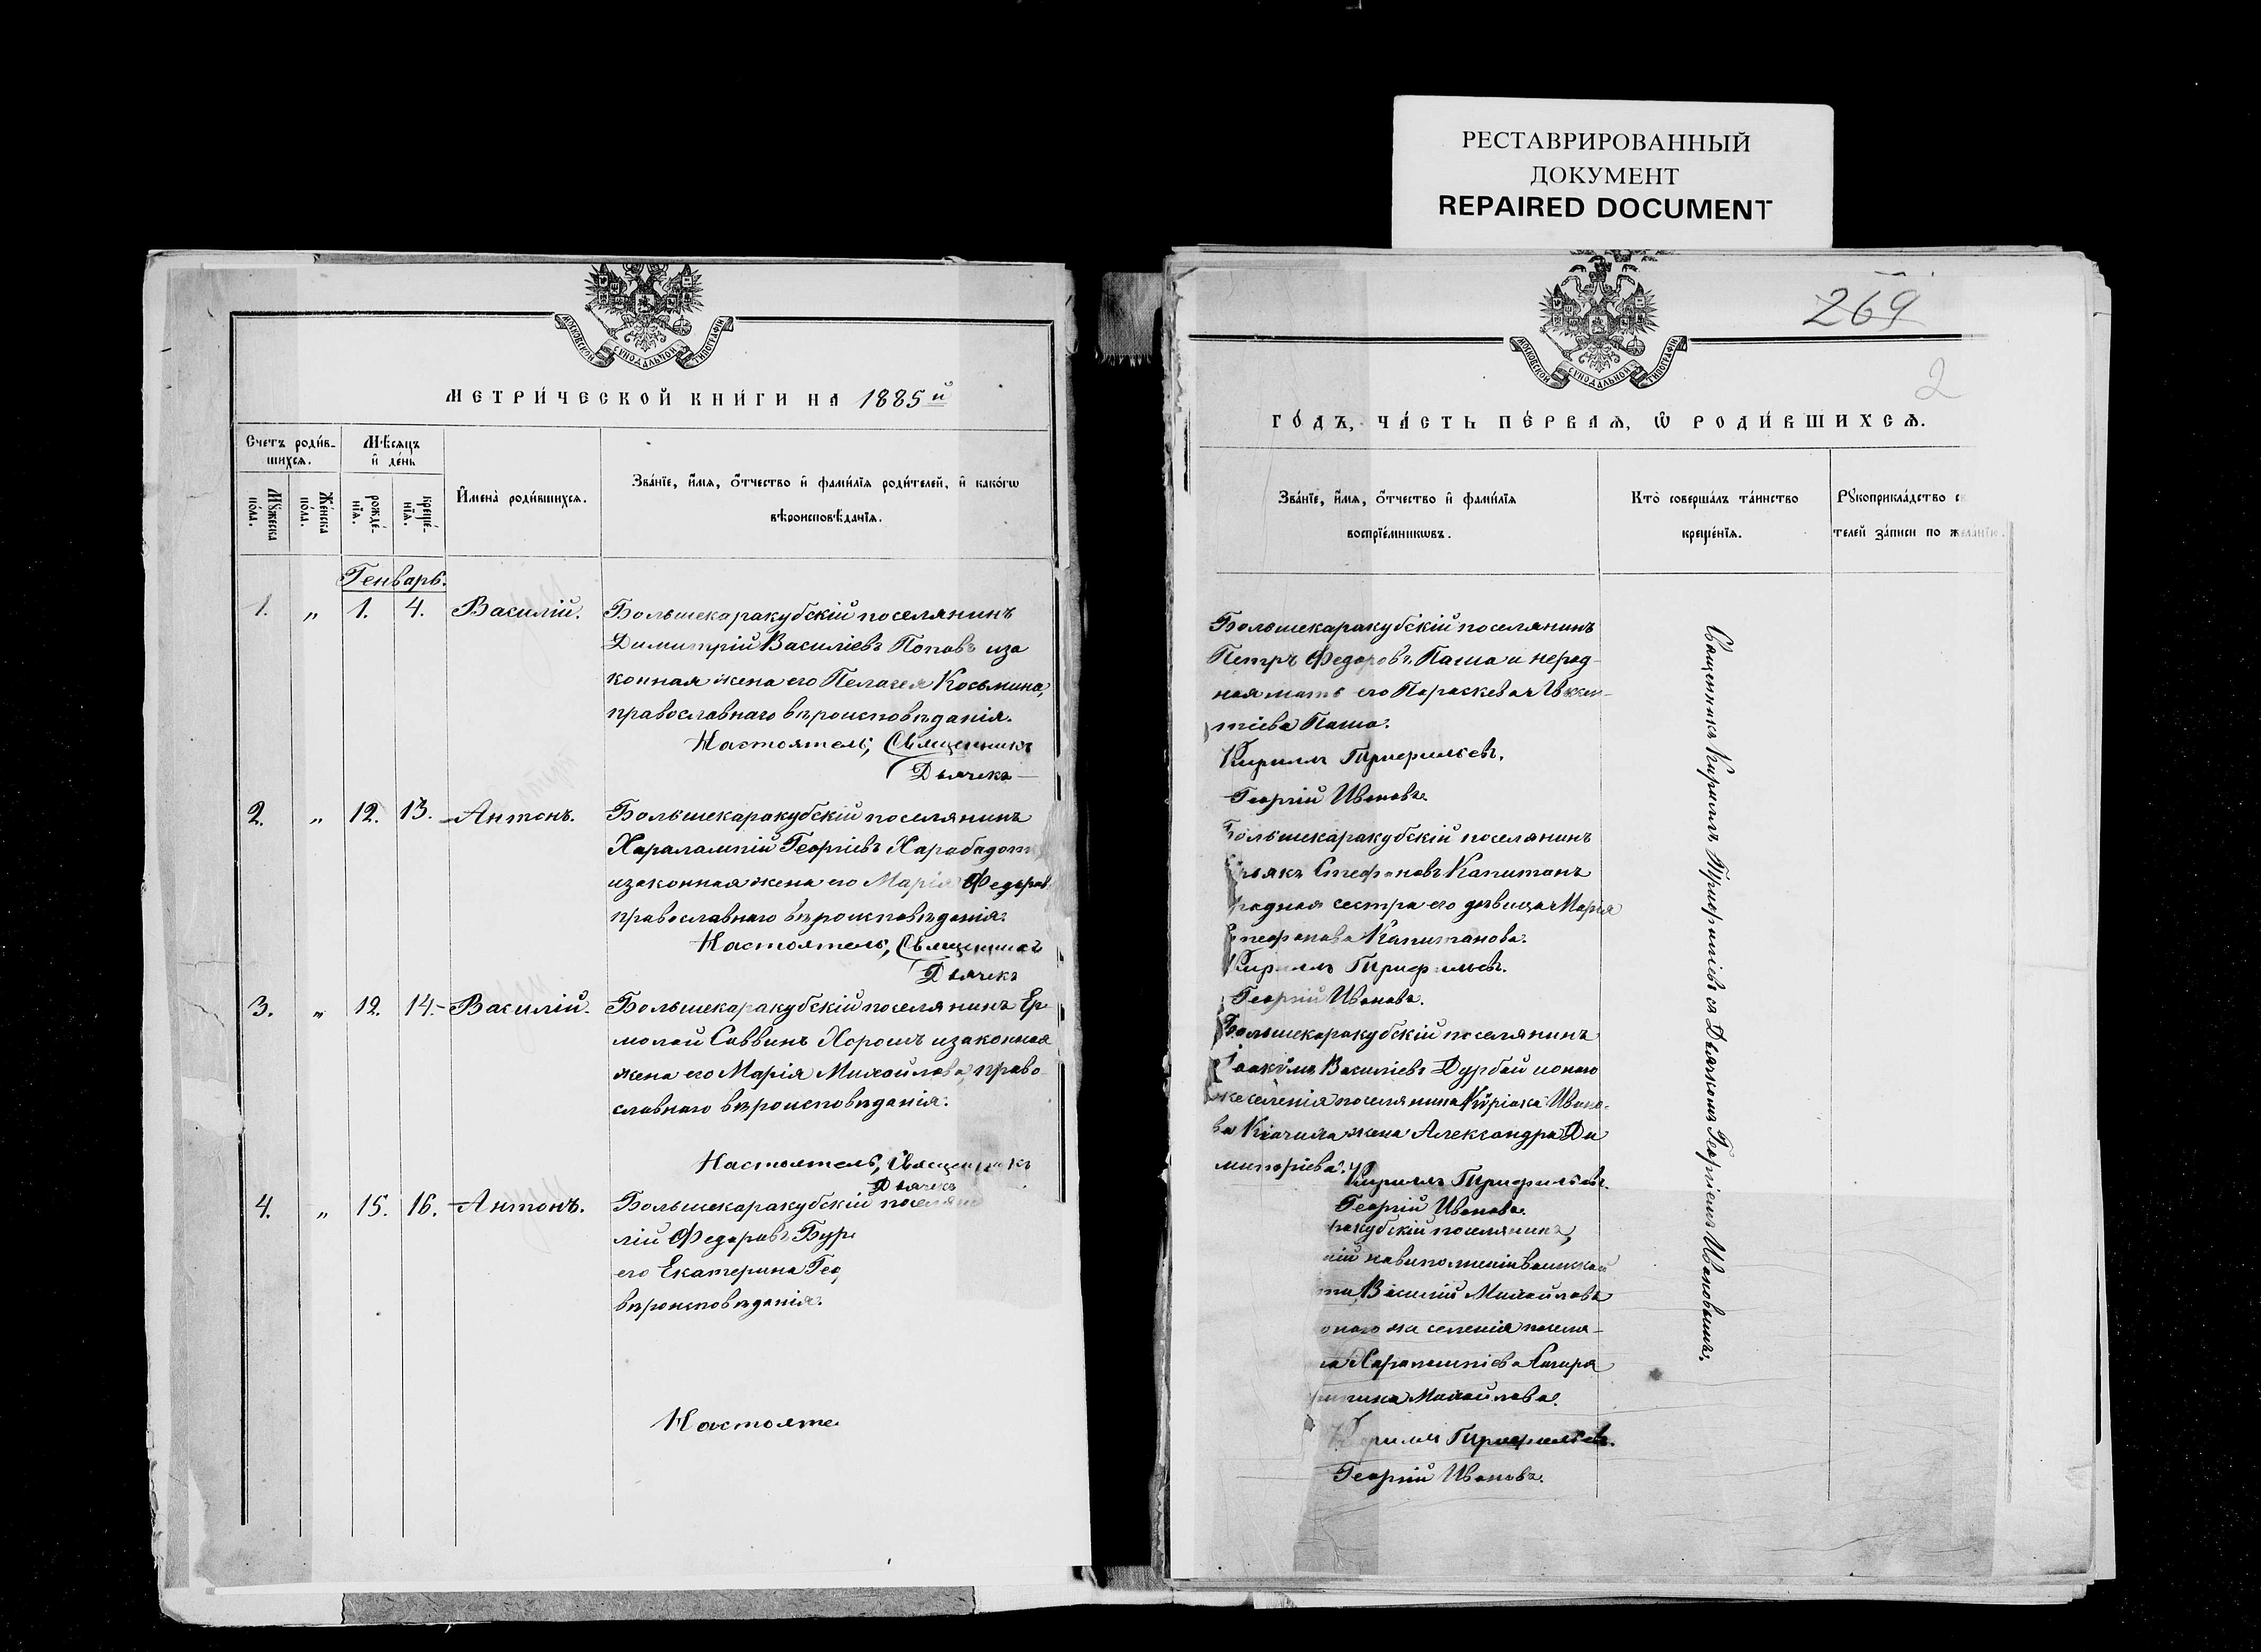 РЕСТАВРИРОВАННЫЙ
ДОКУМЕНТ
REPAIRED DOCUMENT
МОСКОВСКОЙ СУНОДАЛЬНОЙ ТИПОГРАФІИ
МЕТРИ́ЧЕСКОЙ КНИ́ГИ НА 1885й
Счетъ роди́в-
шихся.
Мѣсяцъ
и҆ де́нь
Мꙋ́жеска
по́ла.
Же́нска
по́ла.
рожде́-
нїя.
креще́-
нїя.
И҆мена̀ роди́вшихся.
Зва́нїе, и҆́мя, ѻ҆́тчество и҆ фами́лїя роди́телей, и҆ како́гѡ
вѣроисповѣ́данїя.
Генварь.
1. „ 1. 4. Василій. Большекаракубскій поселянинъ
Димитрій Василіевъ Поповъ иза
конная жена его Пелагея Косьмина,
православнаго вѣроисповѣданія.
Настоятель, Священникъ
Дьячекъ
2. „ 12. 13. Антонъ. Большекаракубскій поселянинъ
Харалампій Георгіевъ Харабадот
изаконная жена его Марія Федоров
православнаго вѣроисповѣданія.
Настоятель, Священникъ
Дьячекъ
3. „ 12. 14. Василій. Большекаракубскій поселянинъ Ер
молай Саввинъ Хорошъ изаконная
жена его Марія Михайлова, право
славнаго вѣроисповѣданія.
Настоятель, Священникъ
Дьячекъ
4. „ 15. 16. Антонъ. Большекаракубскій поселян
лій Федоровъ Бур
его Екатерина Гео
вѣроисповѣданія.
Настояте
269
2
МОСКОВСКОЙ СУНОДАЛЬНОЙ ТИПОГРАФІИ
ГО́ДЪ, ЧА́СТЬ ПЕ́РВАЯ, Ѡ҆ РОДИ́ВШИХСЯ.
Зва́нїе, и҆́мя, ѻ҆́тчество и҆ фами́лїя
воспрїе́мникѡвъ.
Кто̀ соверша́лъ та́инство
креще́нїя.
Рꙋкоприкла́дство с
телей за́писи по жела́нїю.
Большекаракубскій поселянинъ
Петръ Федоровъ Паша и нерод-
ная мать его Параскева
тіева Паша.
Кирилъ Трифильевъ.
Георгій Ивановъ.
Большекаракубскій поселянинъ
Стефановъ Капитанъ
родная сестра его дѣвица Марія
Стефанова Капитанова.
Кирилъ Трифильевъ.
Георгій Ивановъ.
Большекаракубскій поселянинъ
Іоакімъ Василіевъ Дурбай ионаго
же селенія поселянина Кѵріака Ивано-
ва жена Александра Ди
митріева.
Кирилъ Трифильевъ.
Георгій Ивановъ.
ракубскій поселянинъ,
Василій Михайловъ
онаго же селенія поселя-
Харалампіева
Михайлова.
Кирилъ Трифильевъ.
Георгій Ивановъ.
Священникъ Кирилъ Трифиліевъ съ Дьячкомъ Георгіемъ Ивановымъ.